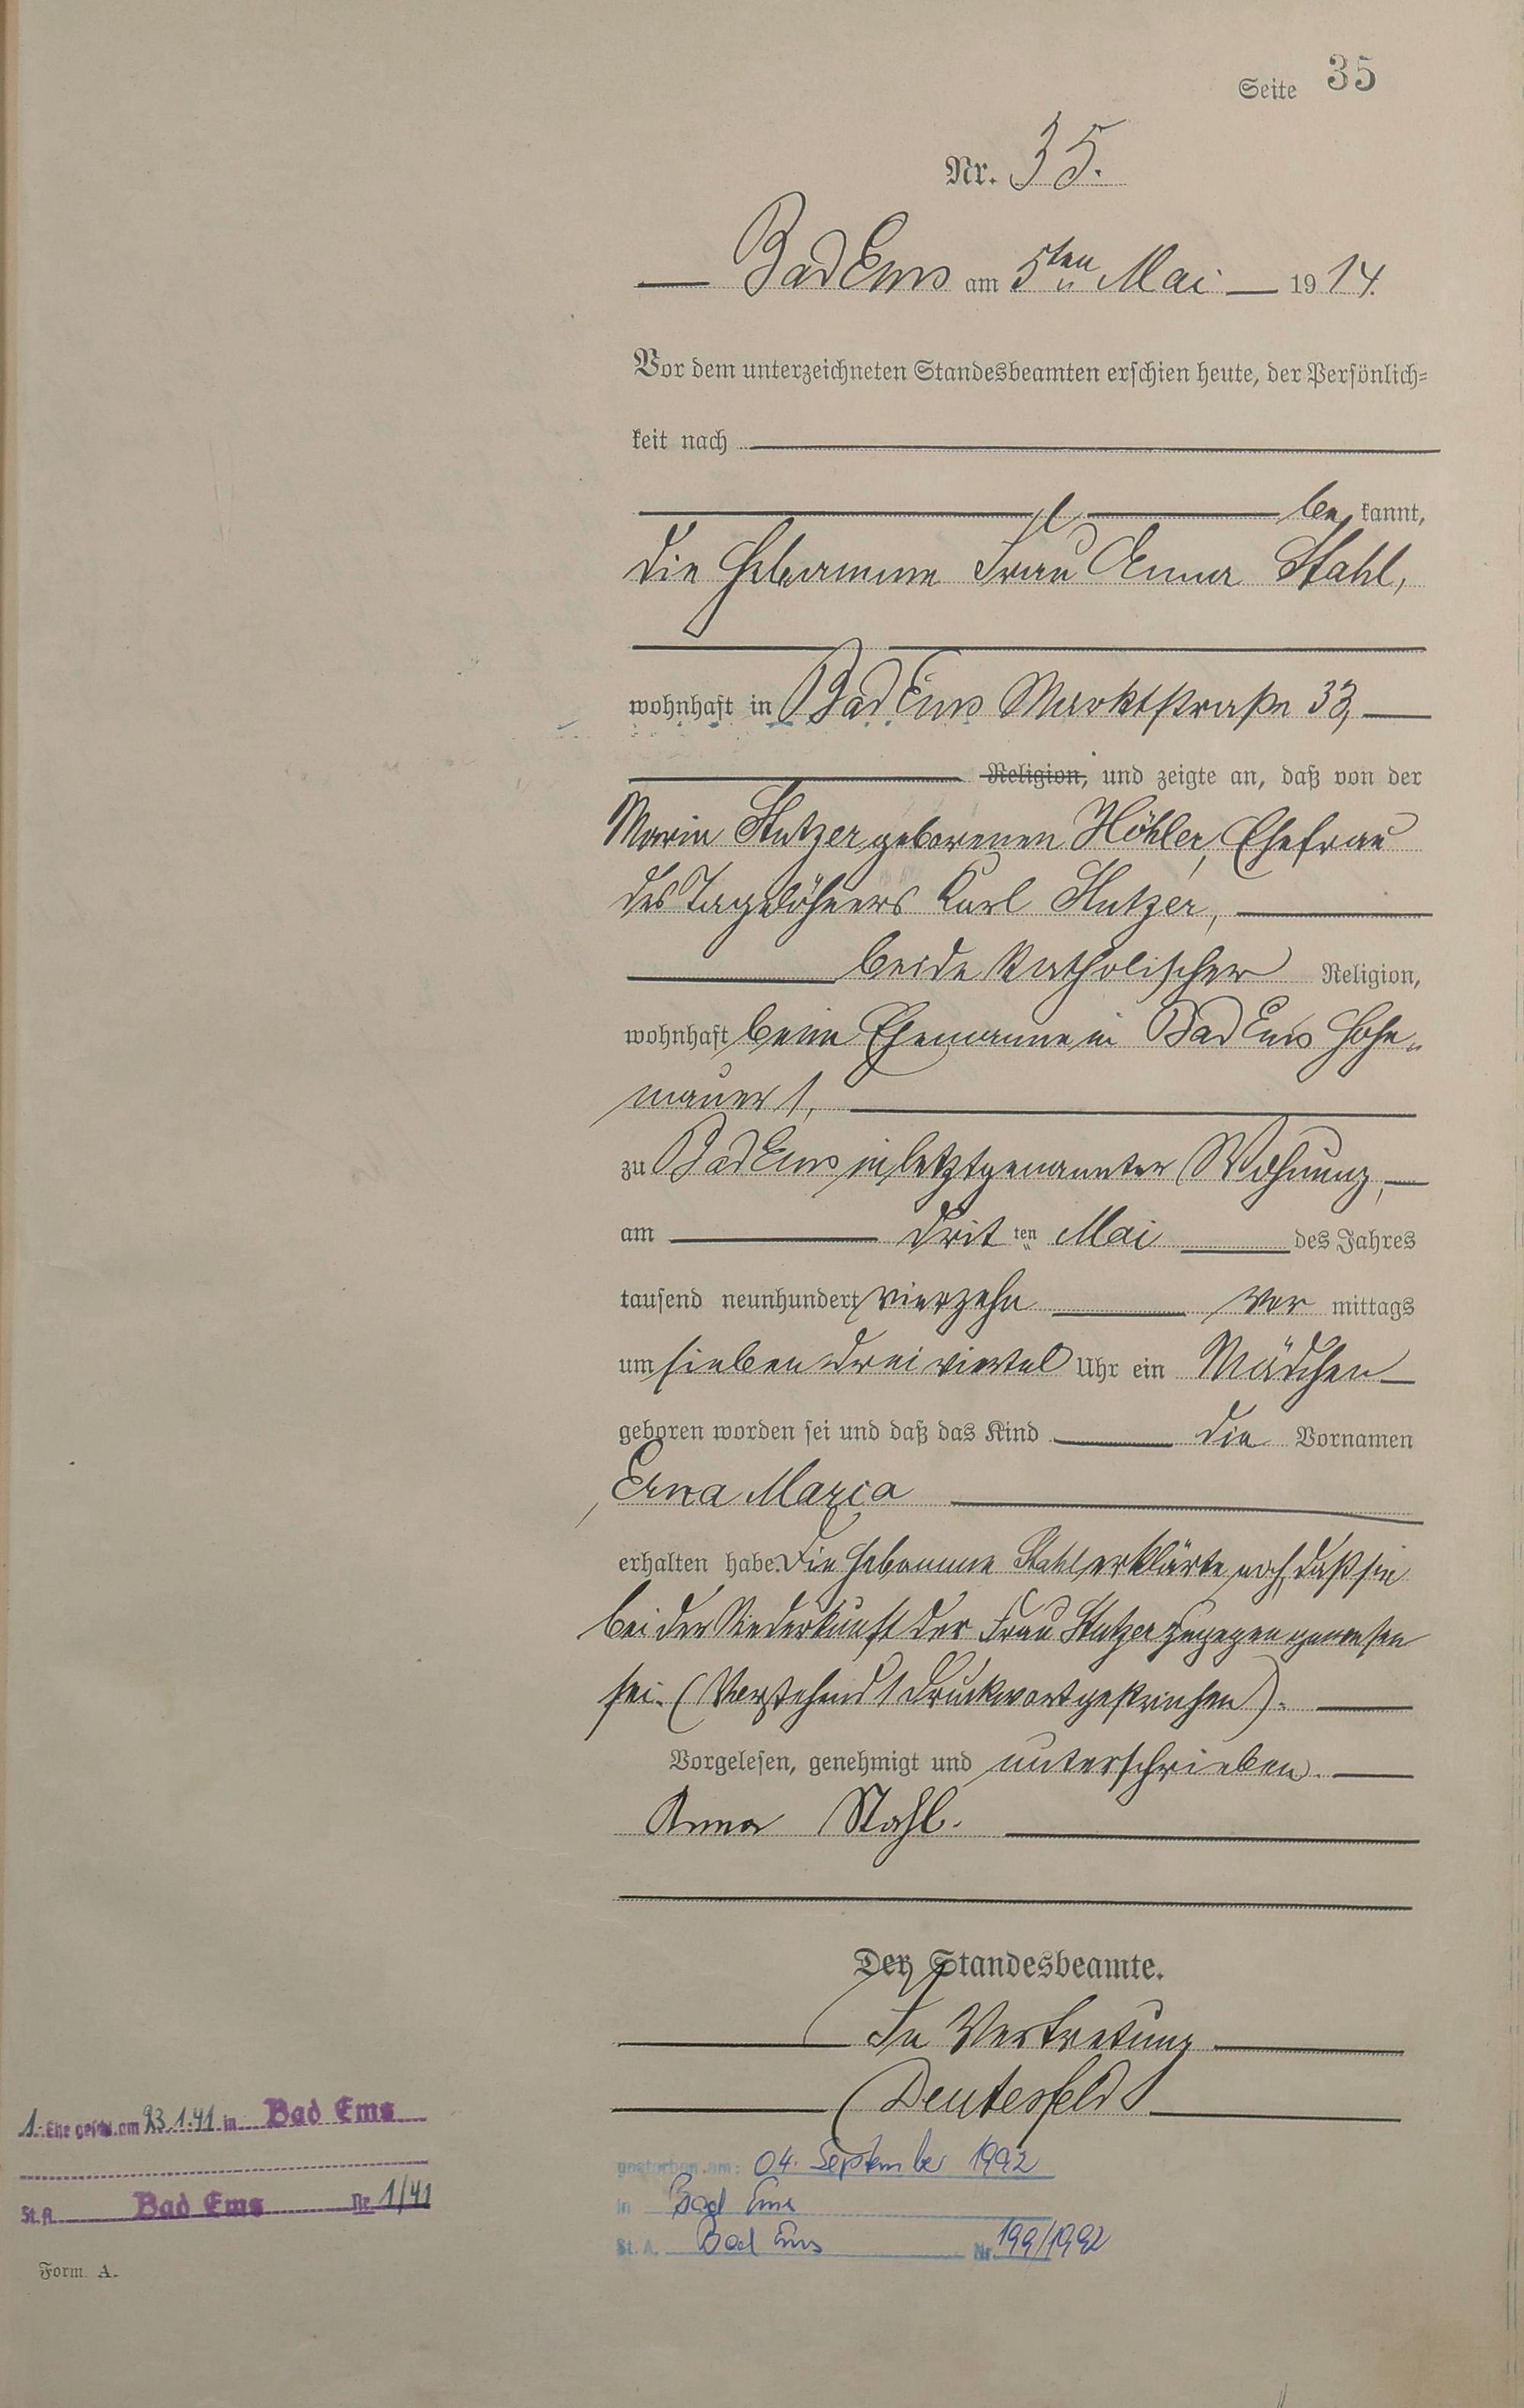 Seite 35
Nr. 35.
Bad Ems am 5ten Mai 1914.
Vor dem unterzeichneten Standesbeamten erschien heute, der Persönlich-
keit nach
be kannt,
die Hebamme Frau Anna Stahl,
wohnhaft in Bad Ems Marktstraße 33,
Religion, und zeigte an, daß von der
Maria Stutzer geborenen Höhler, Ehefrau
des Tagelöhners Karl Stutzer,
beide katholischer Religion,
wohnhaft beim Ehemanne in Bad Ems Hohe-
mauer 1,
zu Bad Ems in letztgenannter Wohnung,
am dritten Mai des Jahres
tausend neunhundert vierzehn vor mittags
um sieben dreiviertel Uhr ein Mädchen
geboren worden sei und daß das Kind die Vornamen
Erna Maria
erhalten habe. Die Hebamme Stahl erklärte noch, daß sie
bei der Niederkunft der Frau Stutzer zugegen gewesen
sei. (Vorstehend 1 Druckwort gestrichen).
Vorgelesen, genehmigt und unterschrieben.
Anna Stahl.
Der Standesbeamte.
In Vertretung
Deutesfeld
1. Ehe geschl. am 23.1.41 in Bad Ems
St. A. Bad Ems Nr. 1/41
gestorben am: 04. September 1992
in Bad Ems
St. A. Bad Ems Nr. 199/1992
Form. A.